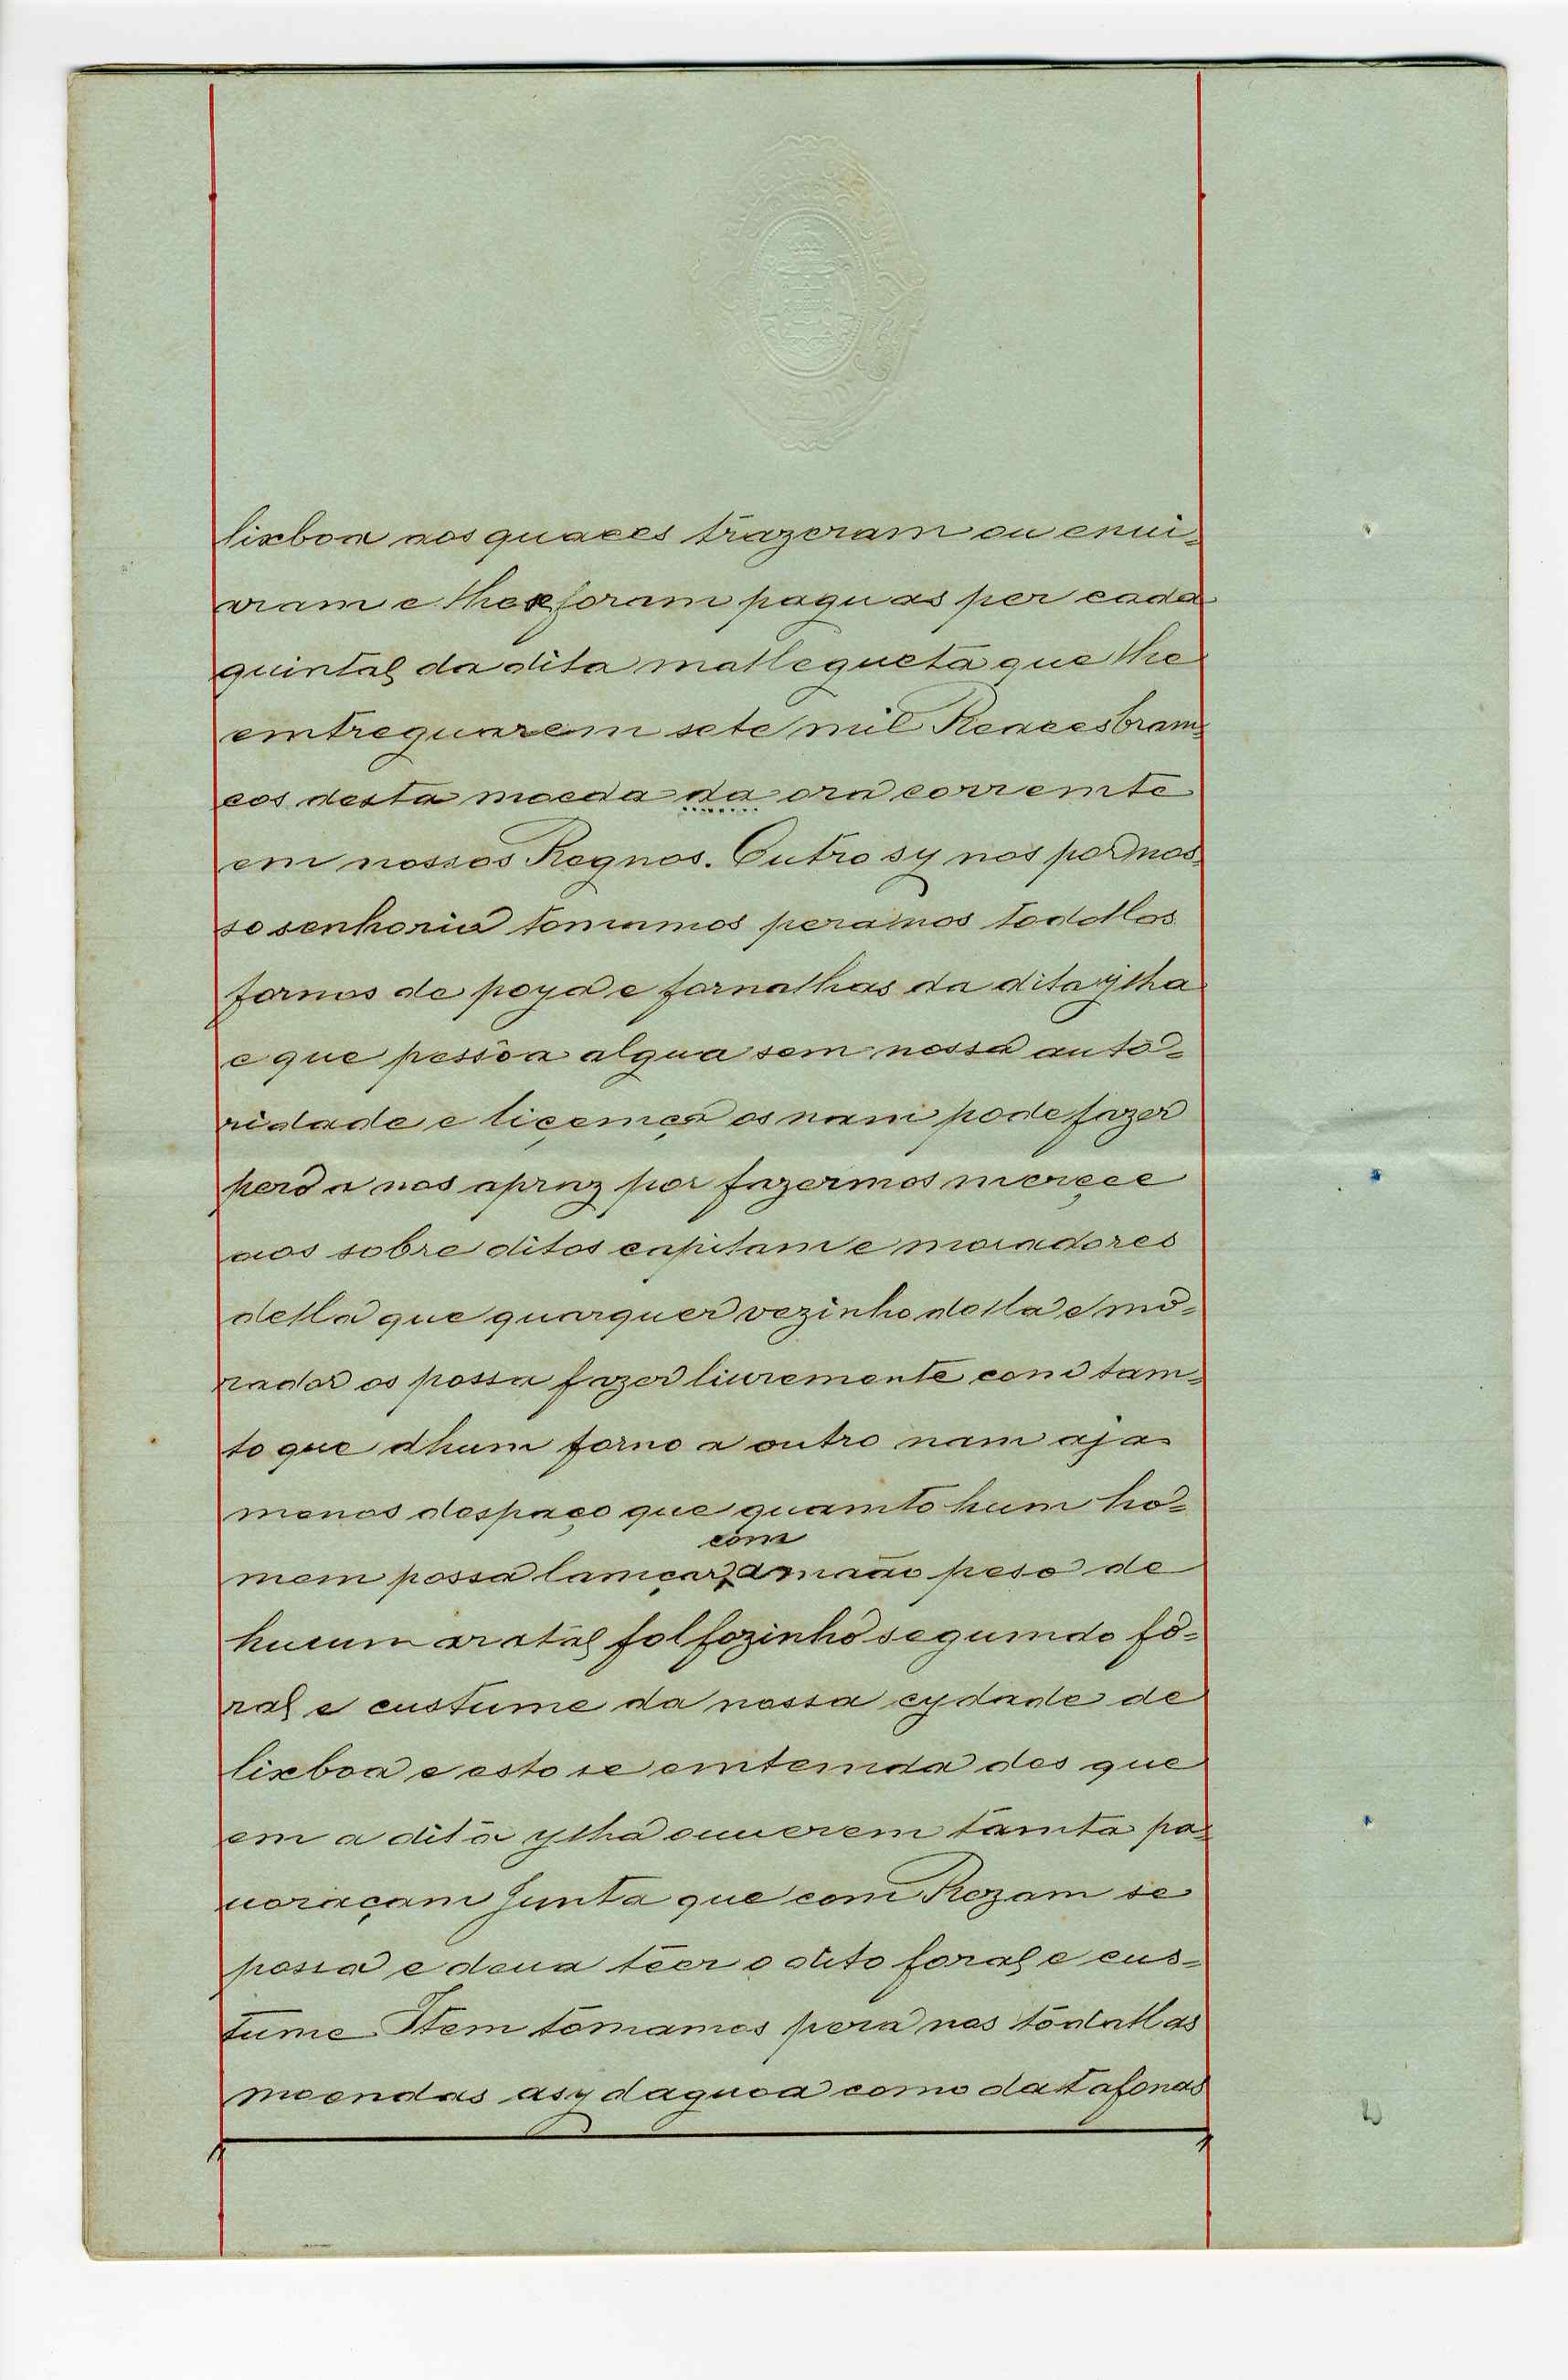 lixboa aos quaees trazeram ou enui-
aram e lhe foram paguas per cada
quintal da dita mallegueta que lhe
emtreguarem sete mil Reaees bram-
cos desta moeda da ora corremte
em nossos Regnos. Outro sy nos por nos-
so senhorio tomamos pera nos todollos
fornos de poya e fornalhas da dita ylha
e que pessoa algua sem nossa auto-
ridade e liçemça os nam pode fazer
pero a nos apraz por fazermos merçee
aos sobre ditos capitam e moradores
della que quarquer vezinho della e mo-
rador os possa fazer liuremente com tam-
to que dhum forno a outro nam aja
menos despaço que quamto hum ho-
com
mem possa lamçar a maão peso de
huum aratal folfozinho segumdo fo-
ral e custume da nossa cydade de
lixboa e esto se emtemda des que
em a dita ylha ouuerem tamta po-
uoraçam Junta que com Rezam se
possa e deua teer o dito foral e cus-
tume Item tomamos pera nos todallas
moendas asy daguoa como datafonas
2